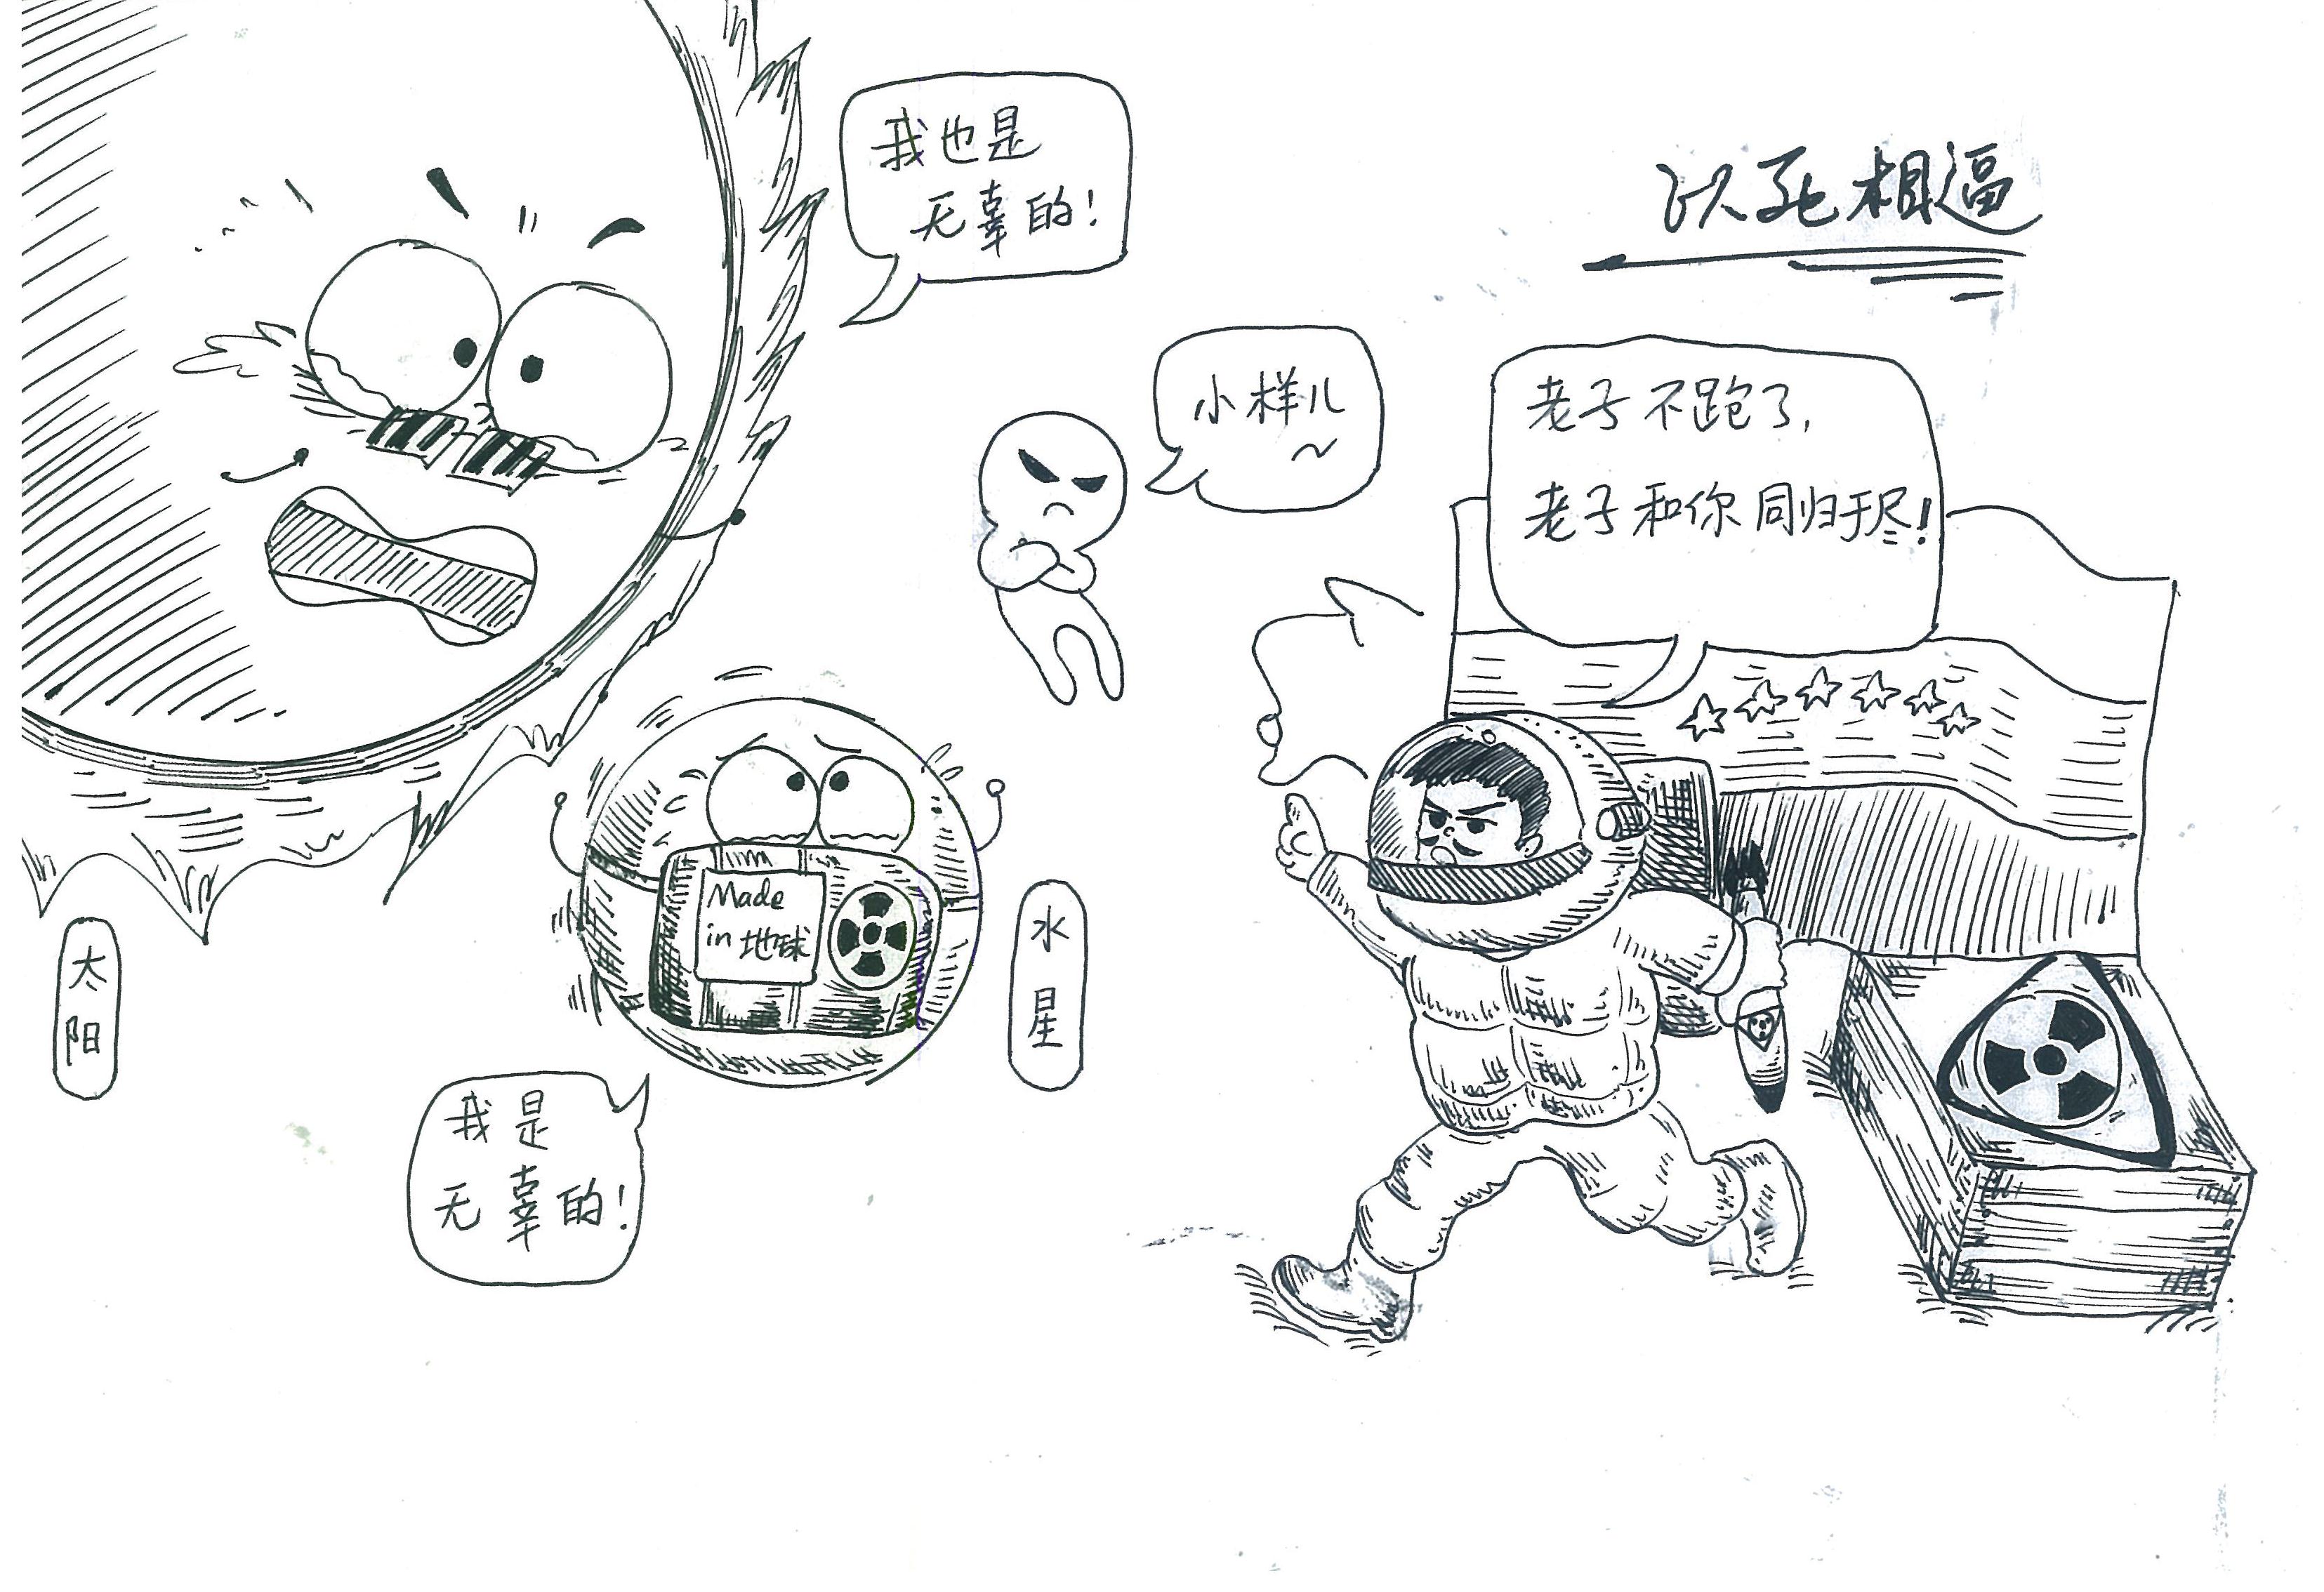 以死相逼
我也是
无辜的!
小样儿
~
老子不跑了,
老子和你同归于尽!
Made
in 地球
太阳
水星
我是
无辜的!